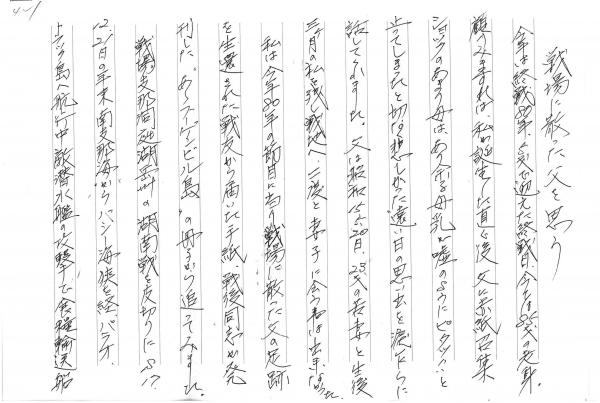 戦場に散った父を思う
今年は終戦80年、5才で迎えた終戦日、今は85才の老身。
顧りみますれば、私が誕生した直ぐ後、父に赤紙召集
ショックのあまり母はあり余る母乳が嘘のようにピタッと
止ってしまったと切なく悲しかった遠い日の思い出を涙ながらに
話しております。父は昭和15、6、20日、23才の若妻と生後
三ヶ月の私を残し戦地へ、二度と妻子に会う事は出来なかった。
私は今年80年の節目に当り戦場に散った父の足跡
を生還された戦友から届いた手紙、戦後同志が発
刊した、あゝブーゲンビル島"の冊子から追ってみました。
戦場、支那洞庭湖岳州の湖南戦を皮切りにS17、
12、21日の年末南支那海からバシー海峡を経パラオ、
トラック島へ航行中敵潜水艦の攻撃で食糧輸送船